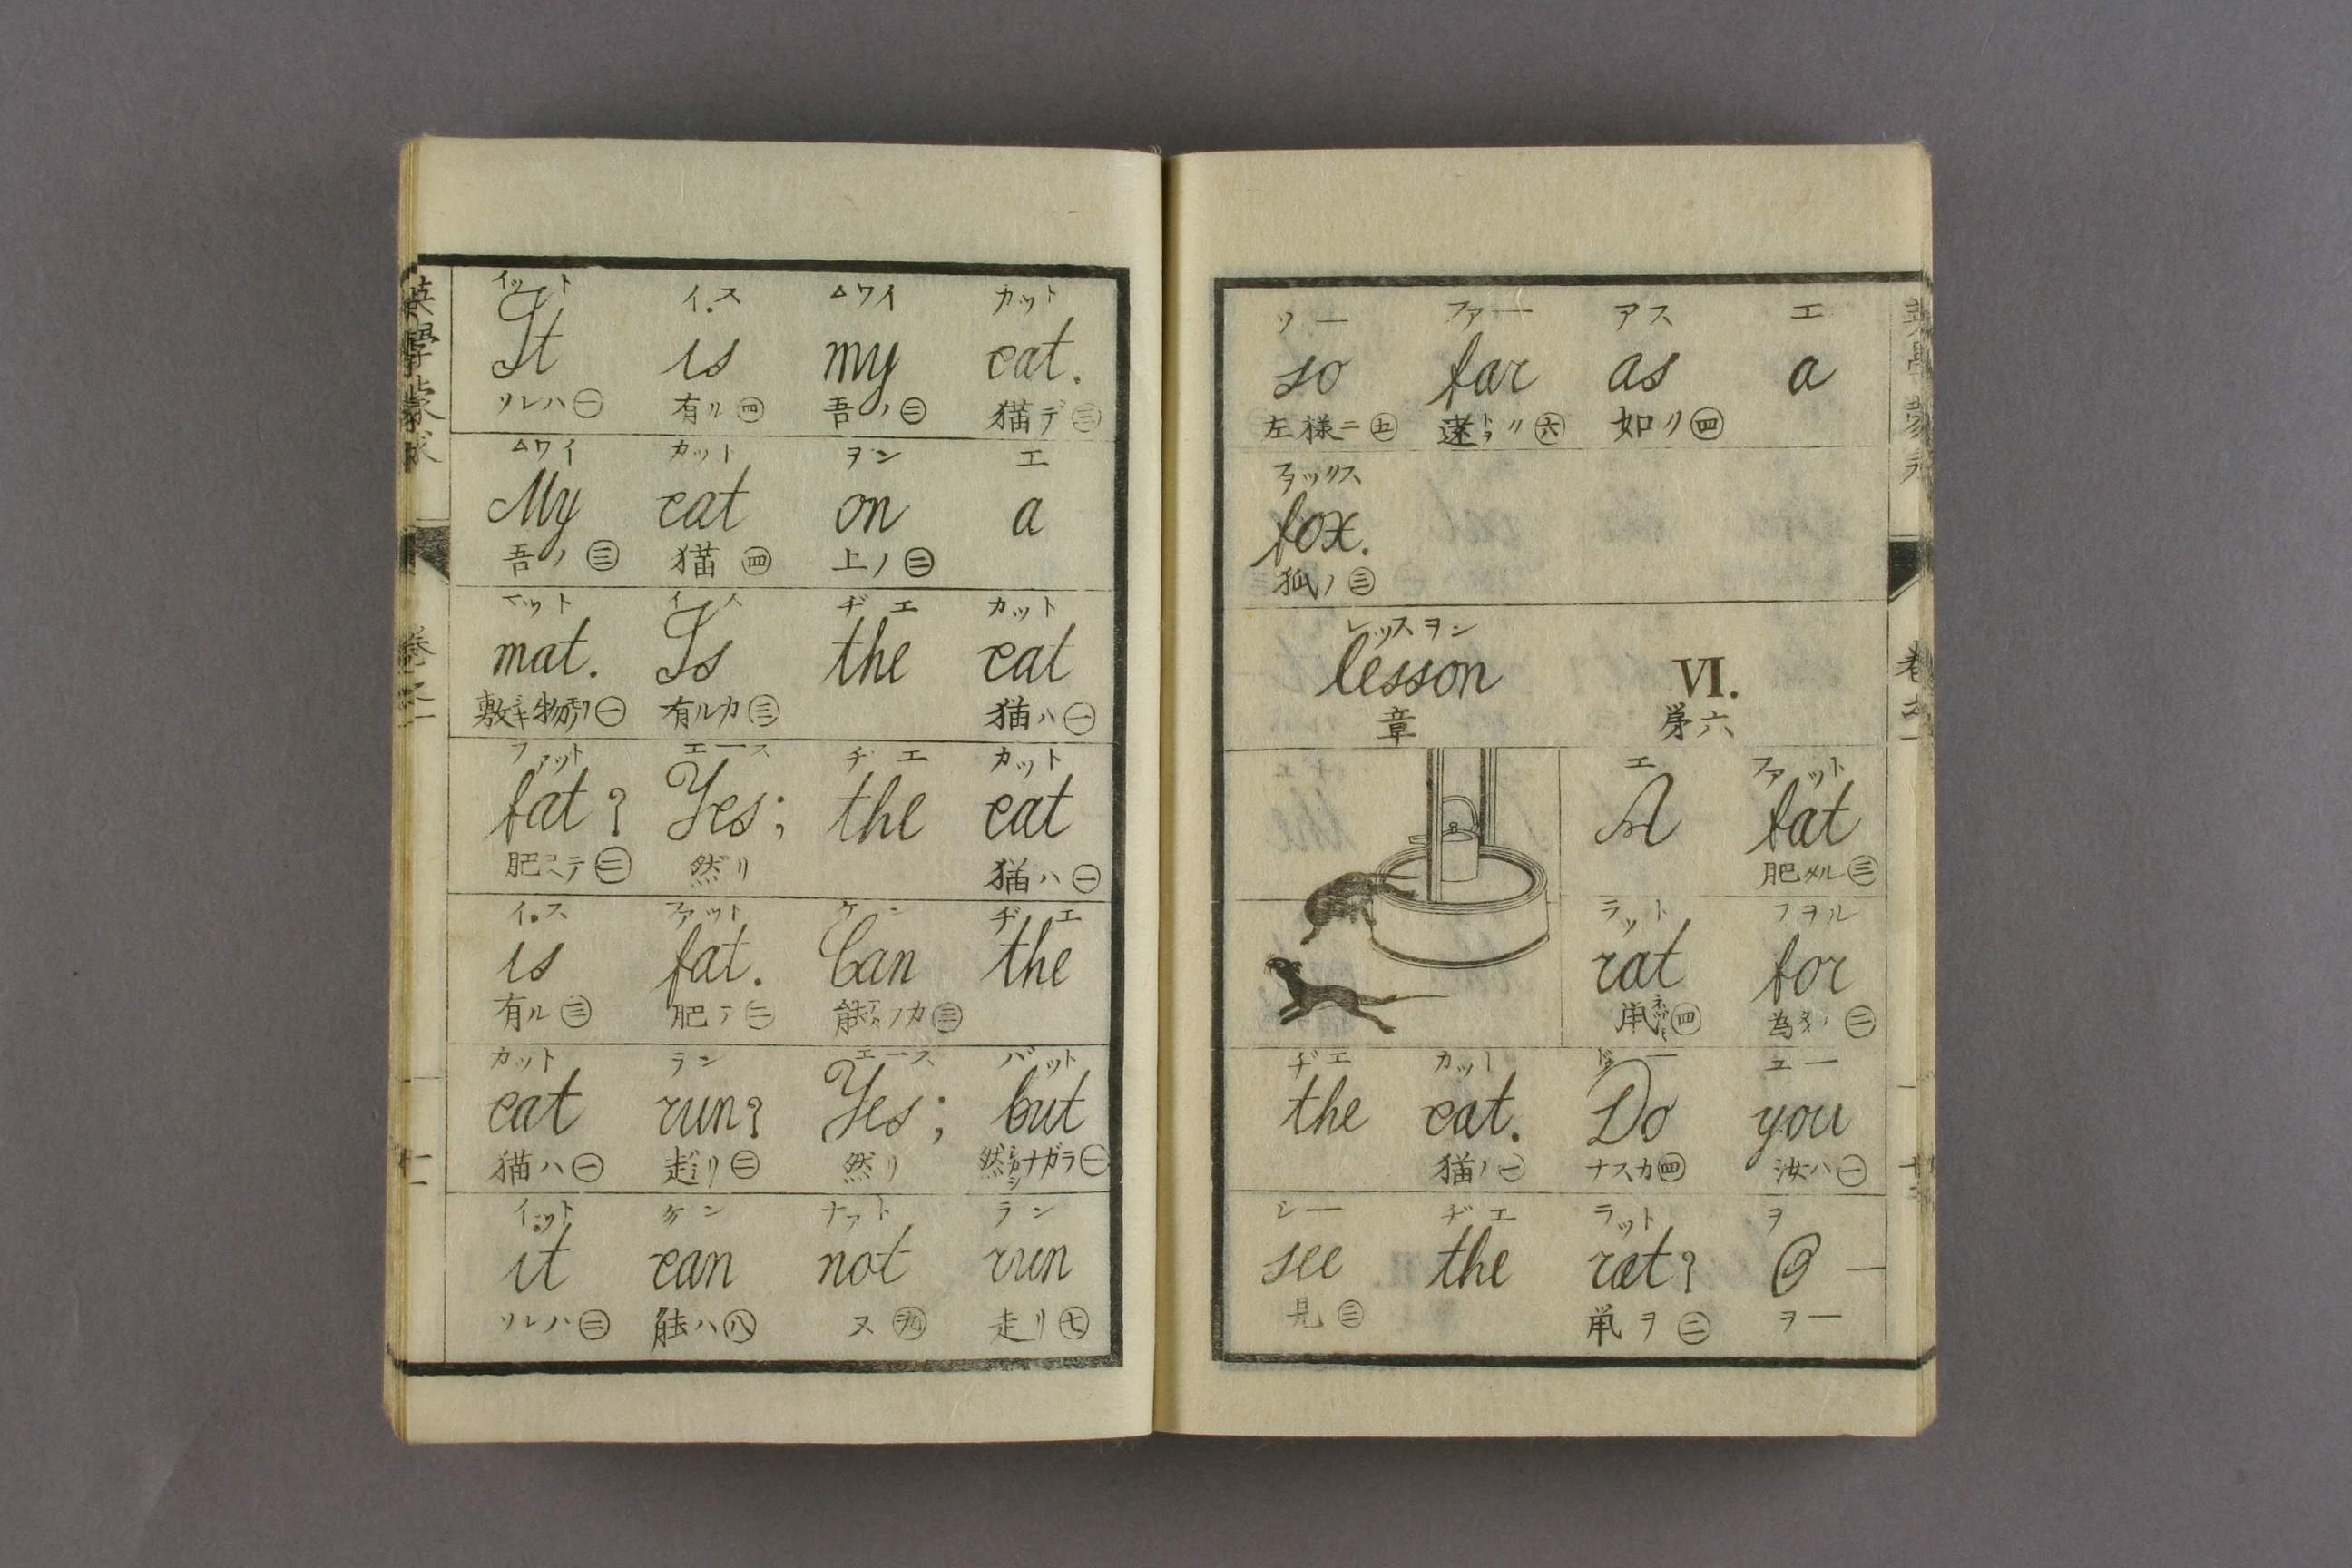 英學蒙求
イット イス ムワイ カット
It is my cat.
ソレハ㊀ 有ル㊃ 吾ノ㊁ 猫デ㊂
ムワイ カット ヲン エ
My cat on a
吾ノ㊂ 猫㊃ 上ノ㊁
マット イス ヂエ カット
mat. Is the cat
有ルカ㊂ 猫ハ㊀
ファット エース ヂエ カット
fat? Yes; the cat
肥コヘテ㊁ 然リ 猫ハ㊀
イス ファット ケン ヂエ
is fat. Can the
有ル㊂ 肥テ㊁ 能ノカ㊂
カット ラン エース バット
cat run? Yes; but
猫ハ㊀ 走リ㊁ 然リ 然シカシナガラ㊀
イット ケン ナット ラン
it can not run
ソレハ㊁ 能ハ㊇ ヌ㊈ 走リ㊆
ソー ファー アス エ
so far as a
左様ニ㊄ 遠トヲク㊅ 如ク㊃
フヲックス
fox.
狐ノ㊂
レッスヲン
lesson VI.
章 第六
エ ファット
A fat
肥メル㊂
ラット フヲル
rat for
鼠㊃ 為タメノ㊁
ヂエ カット ドゥー ユー
the cat. Do you
猫ノ㊀ ナスカ㊃ 汝ハ㊀
シー ヂエ ラット ヲ
see the rat? O
見㊂ 鼠ヲ㊁ ヲー